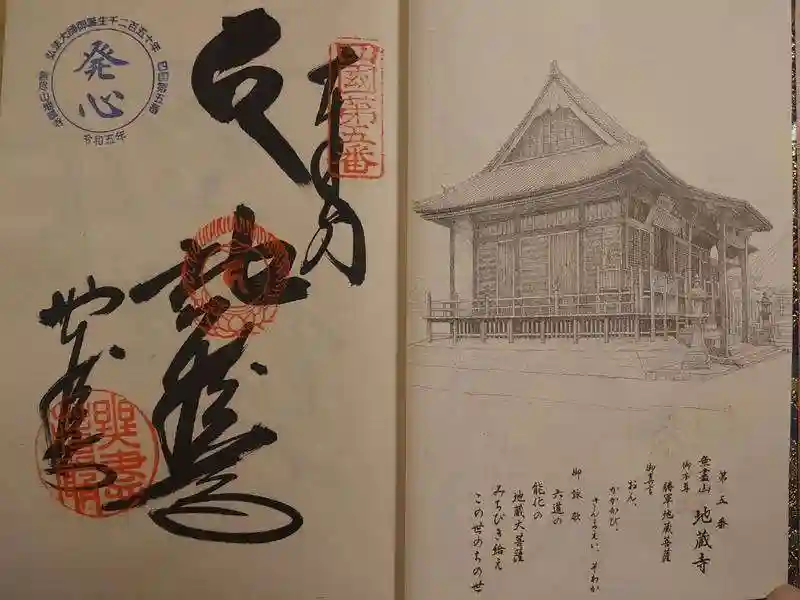 四國第五番
弘法大師御誕生千二百五十年
四国第五番
発心
令和五年
地蔵
第五番
無盡山 地蔵寺
御本尊
勝軍地蔵菩薩
御真言
おん、
かかかび、
さんまえい、そわか
御詠歌
六道の
能化の
地蔵大菩薩
みちびき給え
この世のちの世